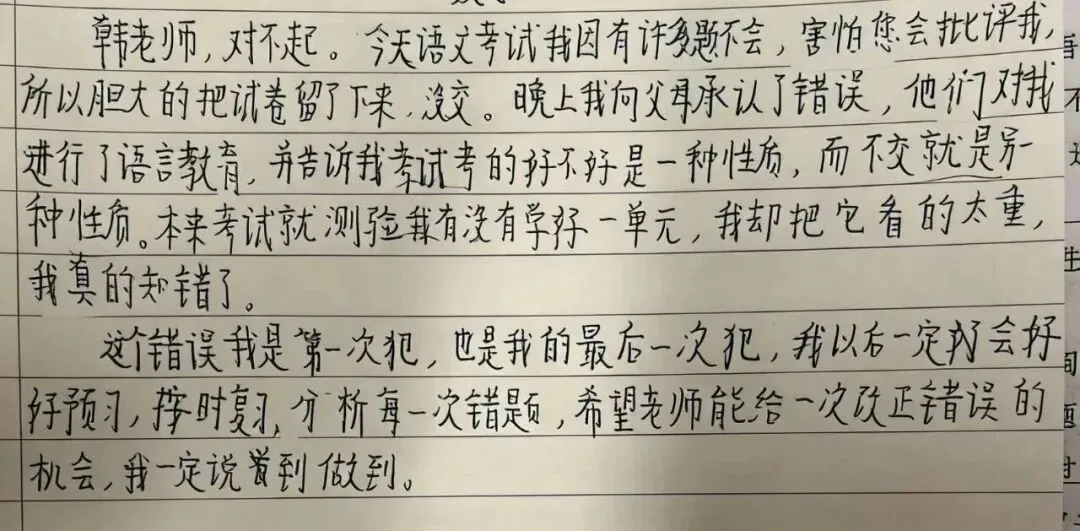 韩老师,对不起。今天语文考试我因有许多题不会,害怕您会批评我,
所以胆大的把试卷留了下来,没交。晚上我向父母承认了错误,他们对我
进行了语言教育,并告诉我考试考的好不好是一种性质,而不交就是另一
种性质。本来考试就测验我有没有学好一单元,我却把它看的太重,
我真的知错了。
这个错误我是第一次犯,也是我的最后一次犯,我以后一定会好
好预习,按时复习,分析每一次错题,希望老师能给一次改正错误的
机会,我一定说到做到。